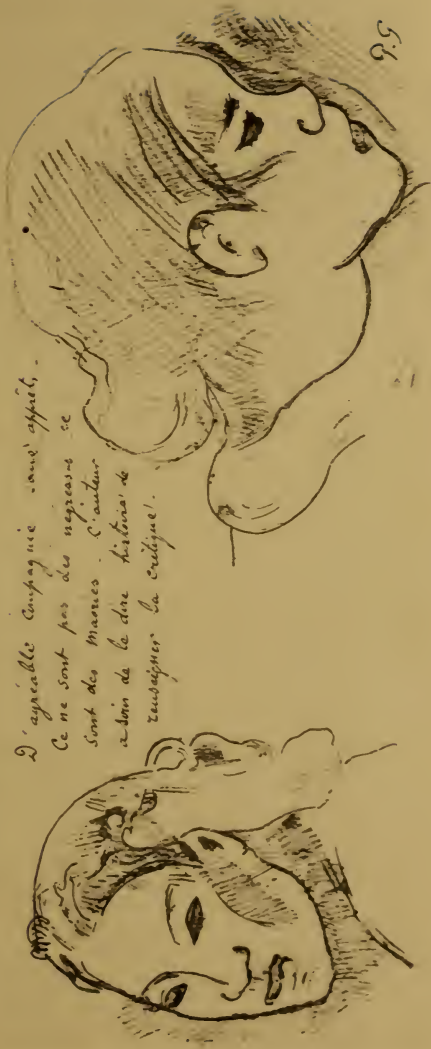 D'agréable compagnie sans apprêt,
Ce ne sont pas des négresses ce
sont des maories. L'auteur
a soin de le dire histoire de
renseigner la critique.